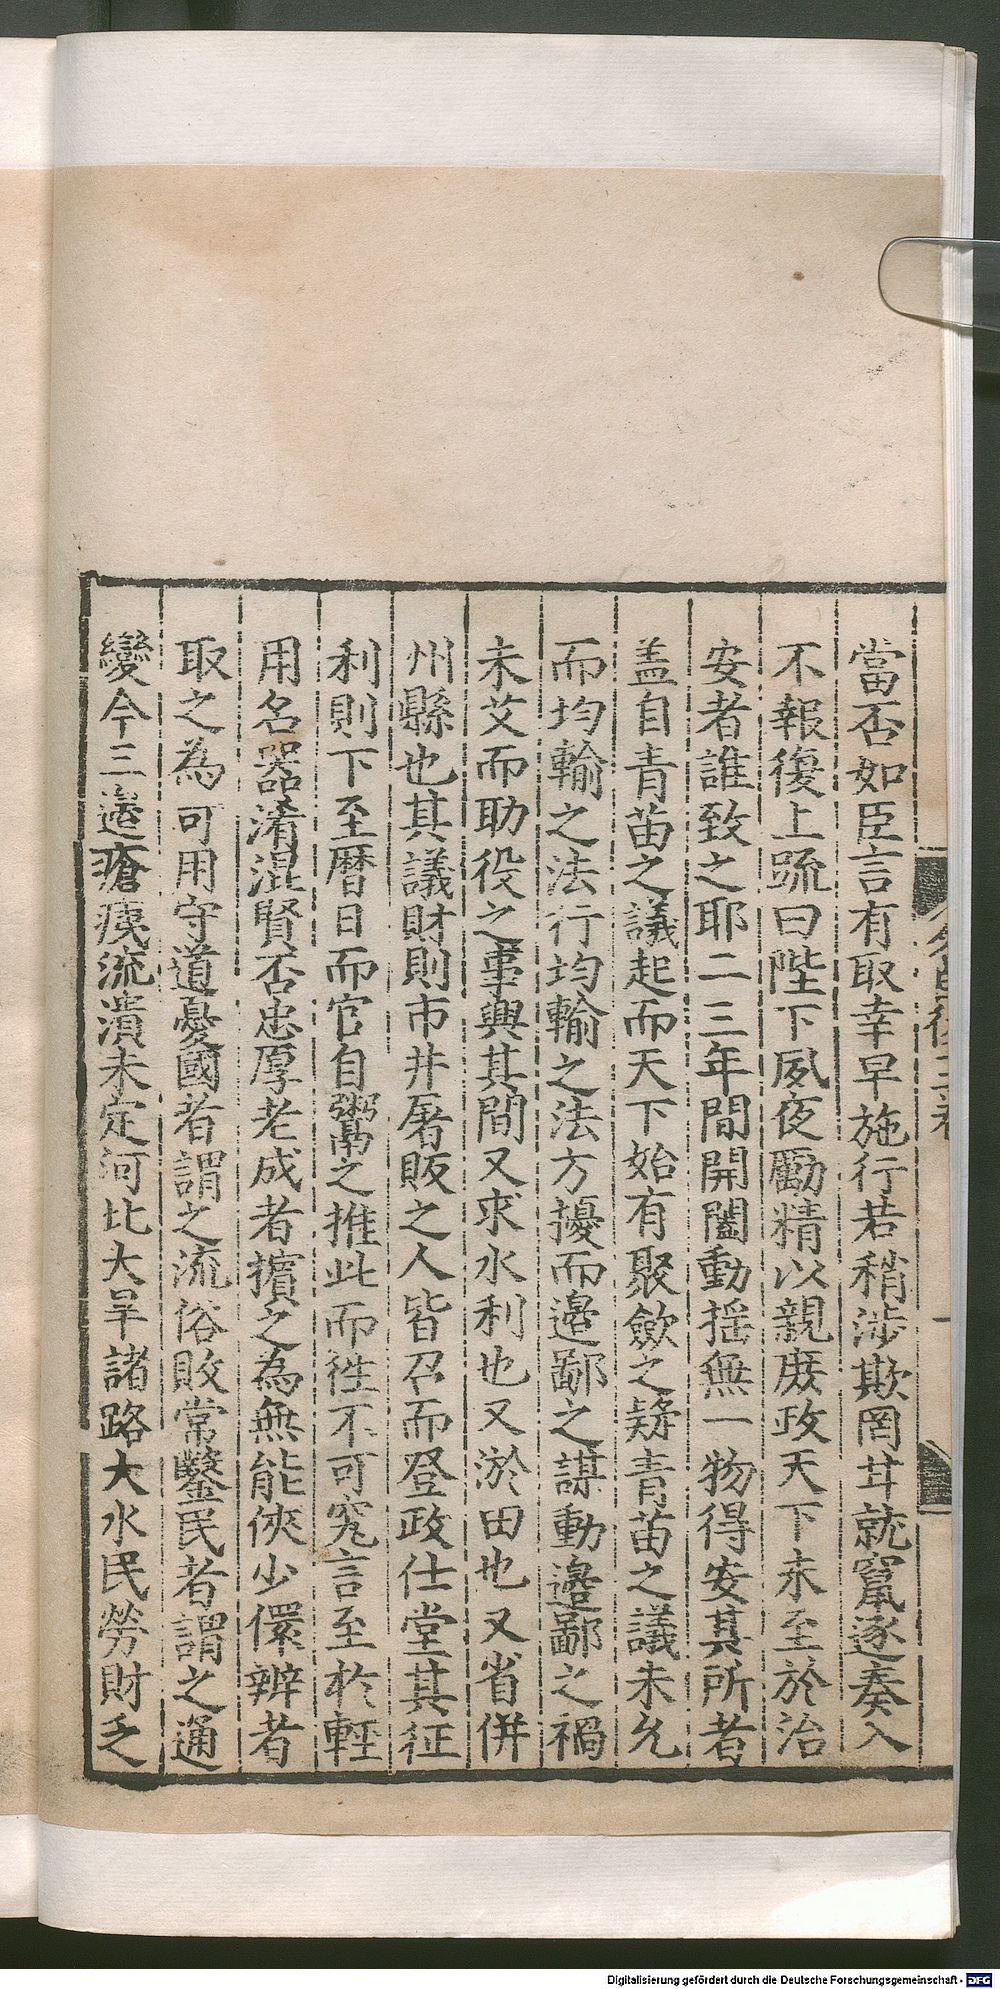 當否如臣言有取幸早施行若稍涉欺罔甘就竄逐奏入
不報復上䟽曰陛下夙夜勵精以親庶政天下未至於治
安者誰致之耶二三年間開闔動揺無一物得安其所者
盖自青苗之議起而天下始有聚歛之疑青苗之議未允
而均輸之法行均輸之法方擾而邉鄙之謀動邉鄙之禍
未艾而助役之事興其間又求水利也又淤田也又省併
州縣也其議財則市井屠販之人皆召而登政仕堂其征
利則下至曆日而官自鬻之推此而徃不可究言至於輕
用名器淆混賢否忠厚老成者擯之為無能俠少儇辨者
取之為可用守道憂國者謂之流俗敗常鑿民者謂之通
變今三邉瘡痍流潰未定河北大旱諸路大水民勞財乏
名臣後三卷
Digitalisierung gefördert durch die Deutsche Forschungsgemeinschaft - DFG